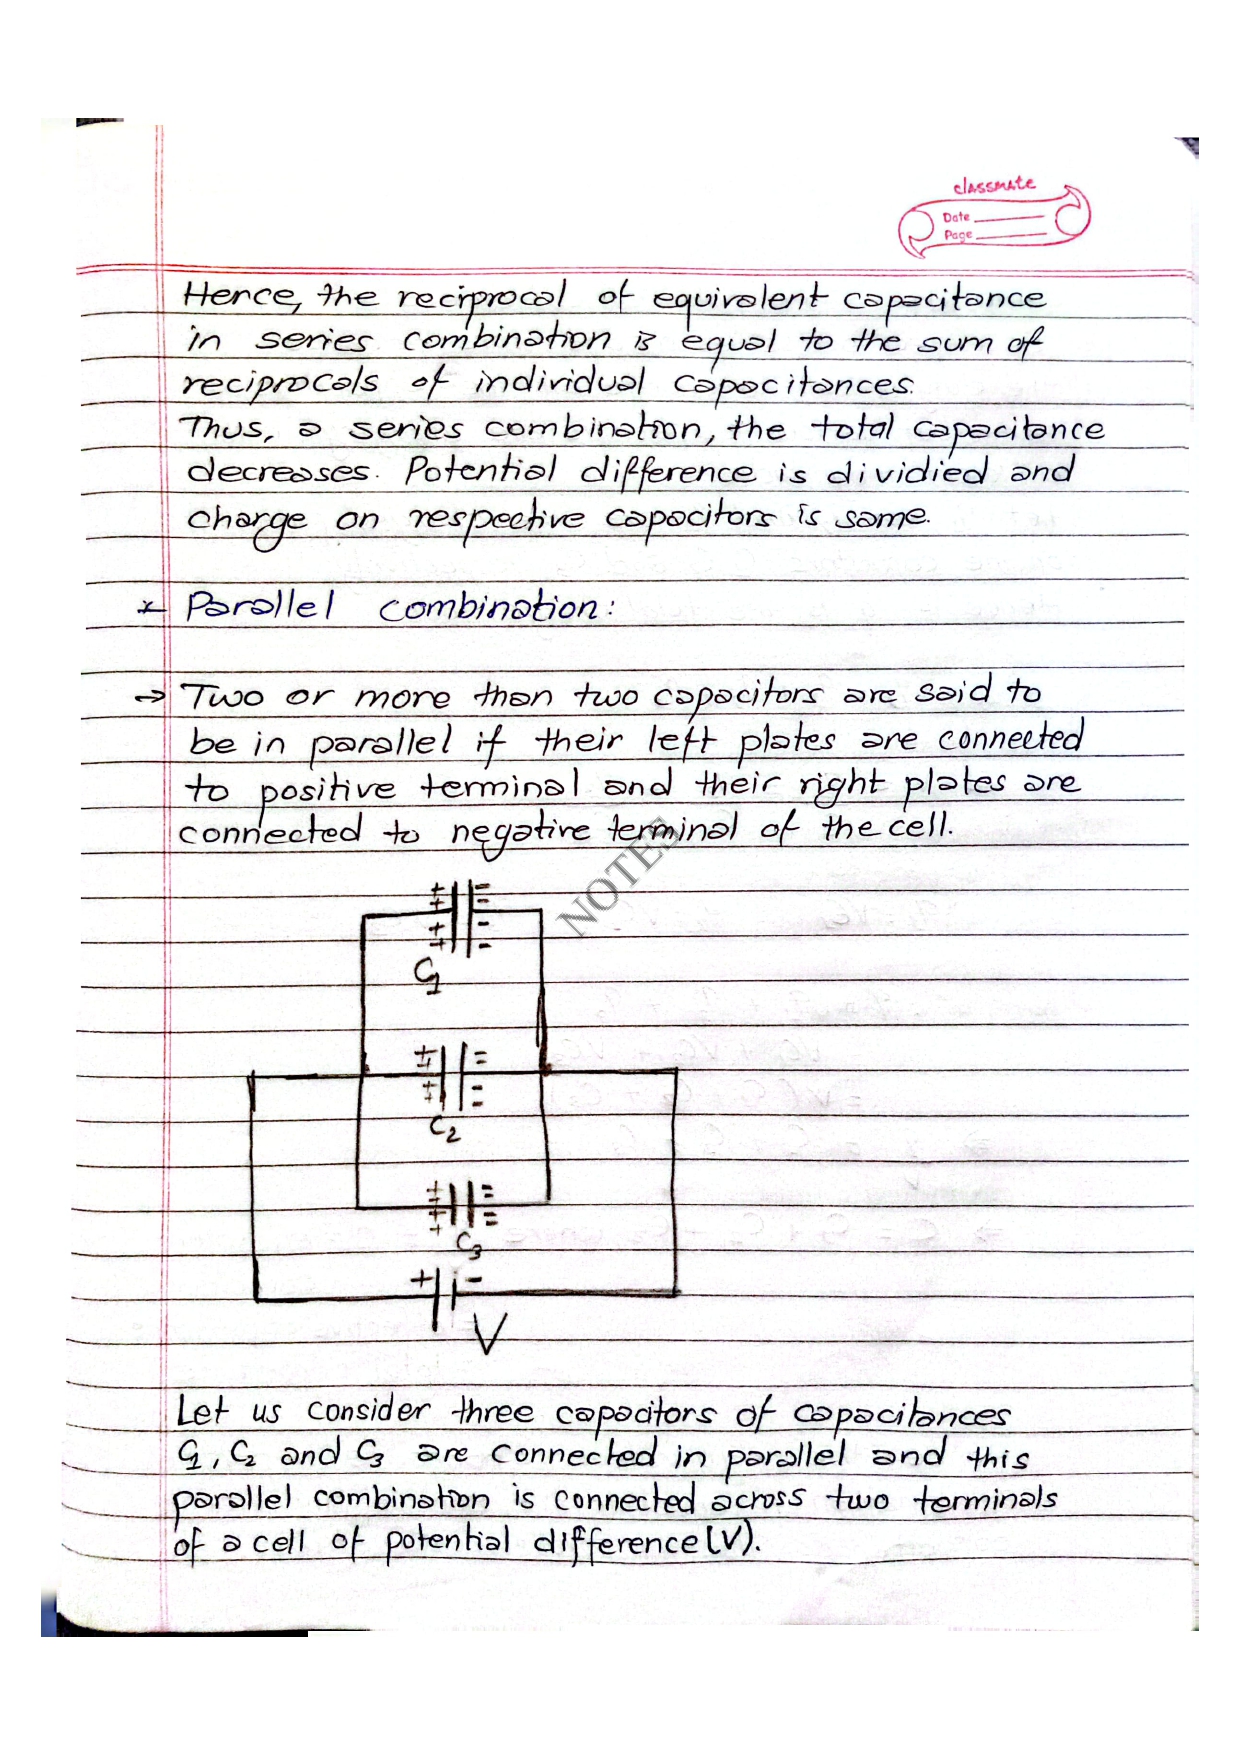 classmate
Date
Page
Hence, the reciprocal of equivalent capacitance
in series combination is equal to the sum of
reciprocals of individual capacitances.
Thus, a series combination, the total capacitance
decreases. Potential difference is dividied and
charge on respective capacitors is same.
* Parallel combination:
→ Two or more than two capacitors are said to
be in parallel if their left plates are connected
to positive terminal and their right plates are
connected to negative terminal of the cell.
NOTES
+ -
+ -
+ -
+ -
C₁
+ =
+ -
+ -
C₂
+ =
+ =
+
C₃
+ -
V
Let us consider three capacitors of capacitances
C₁, C₂ and C₃ are connected in parallel and this
parallel combination is connected across two terminals
of a cell of potential difference (V).